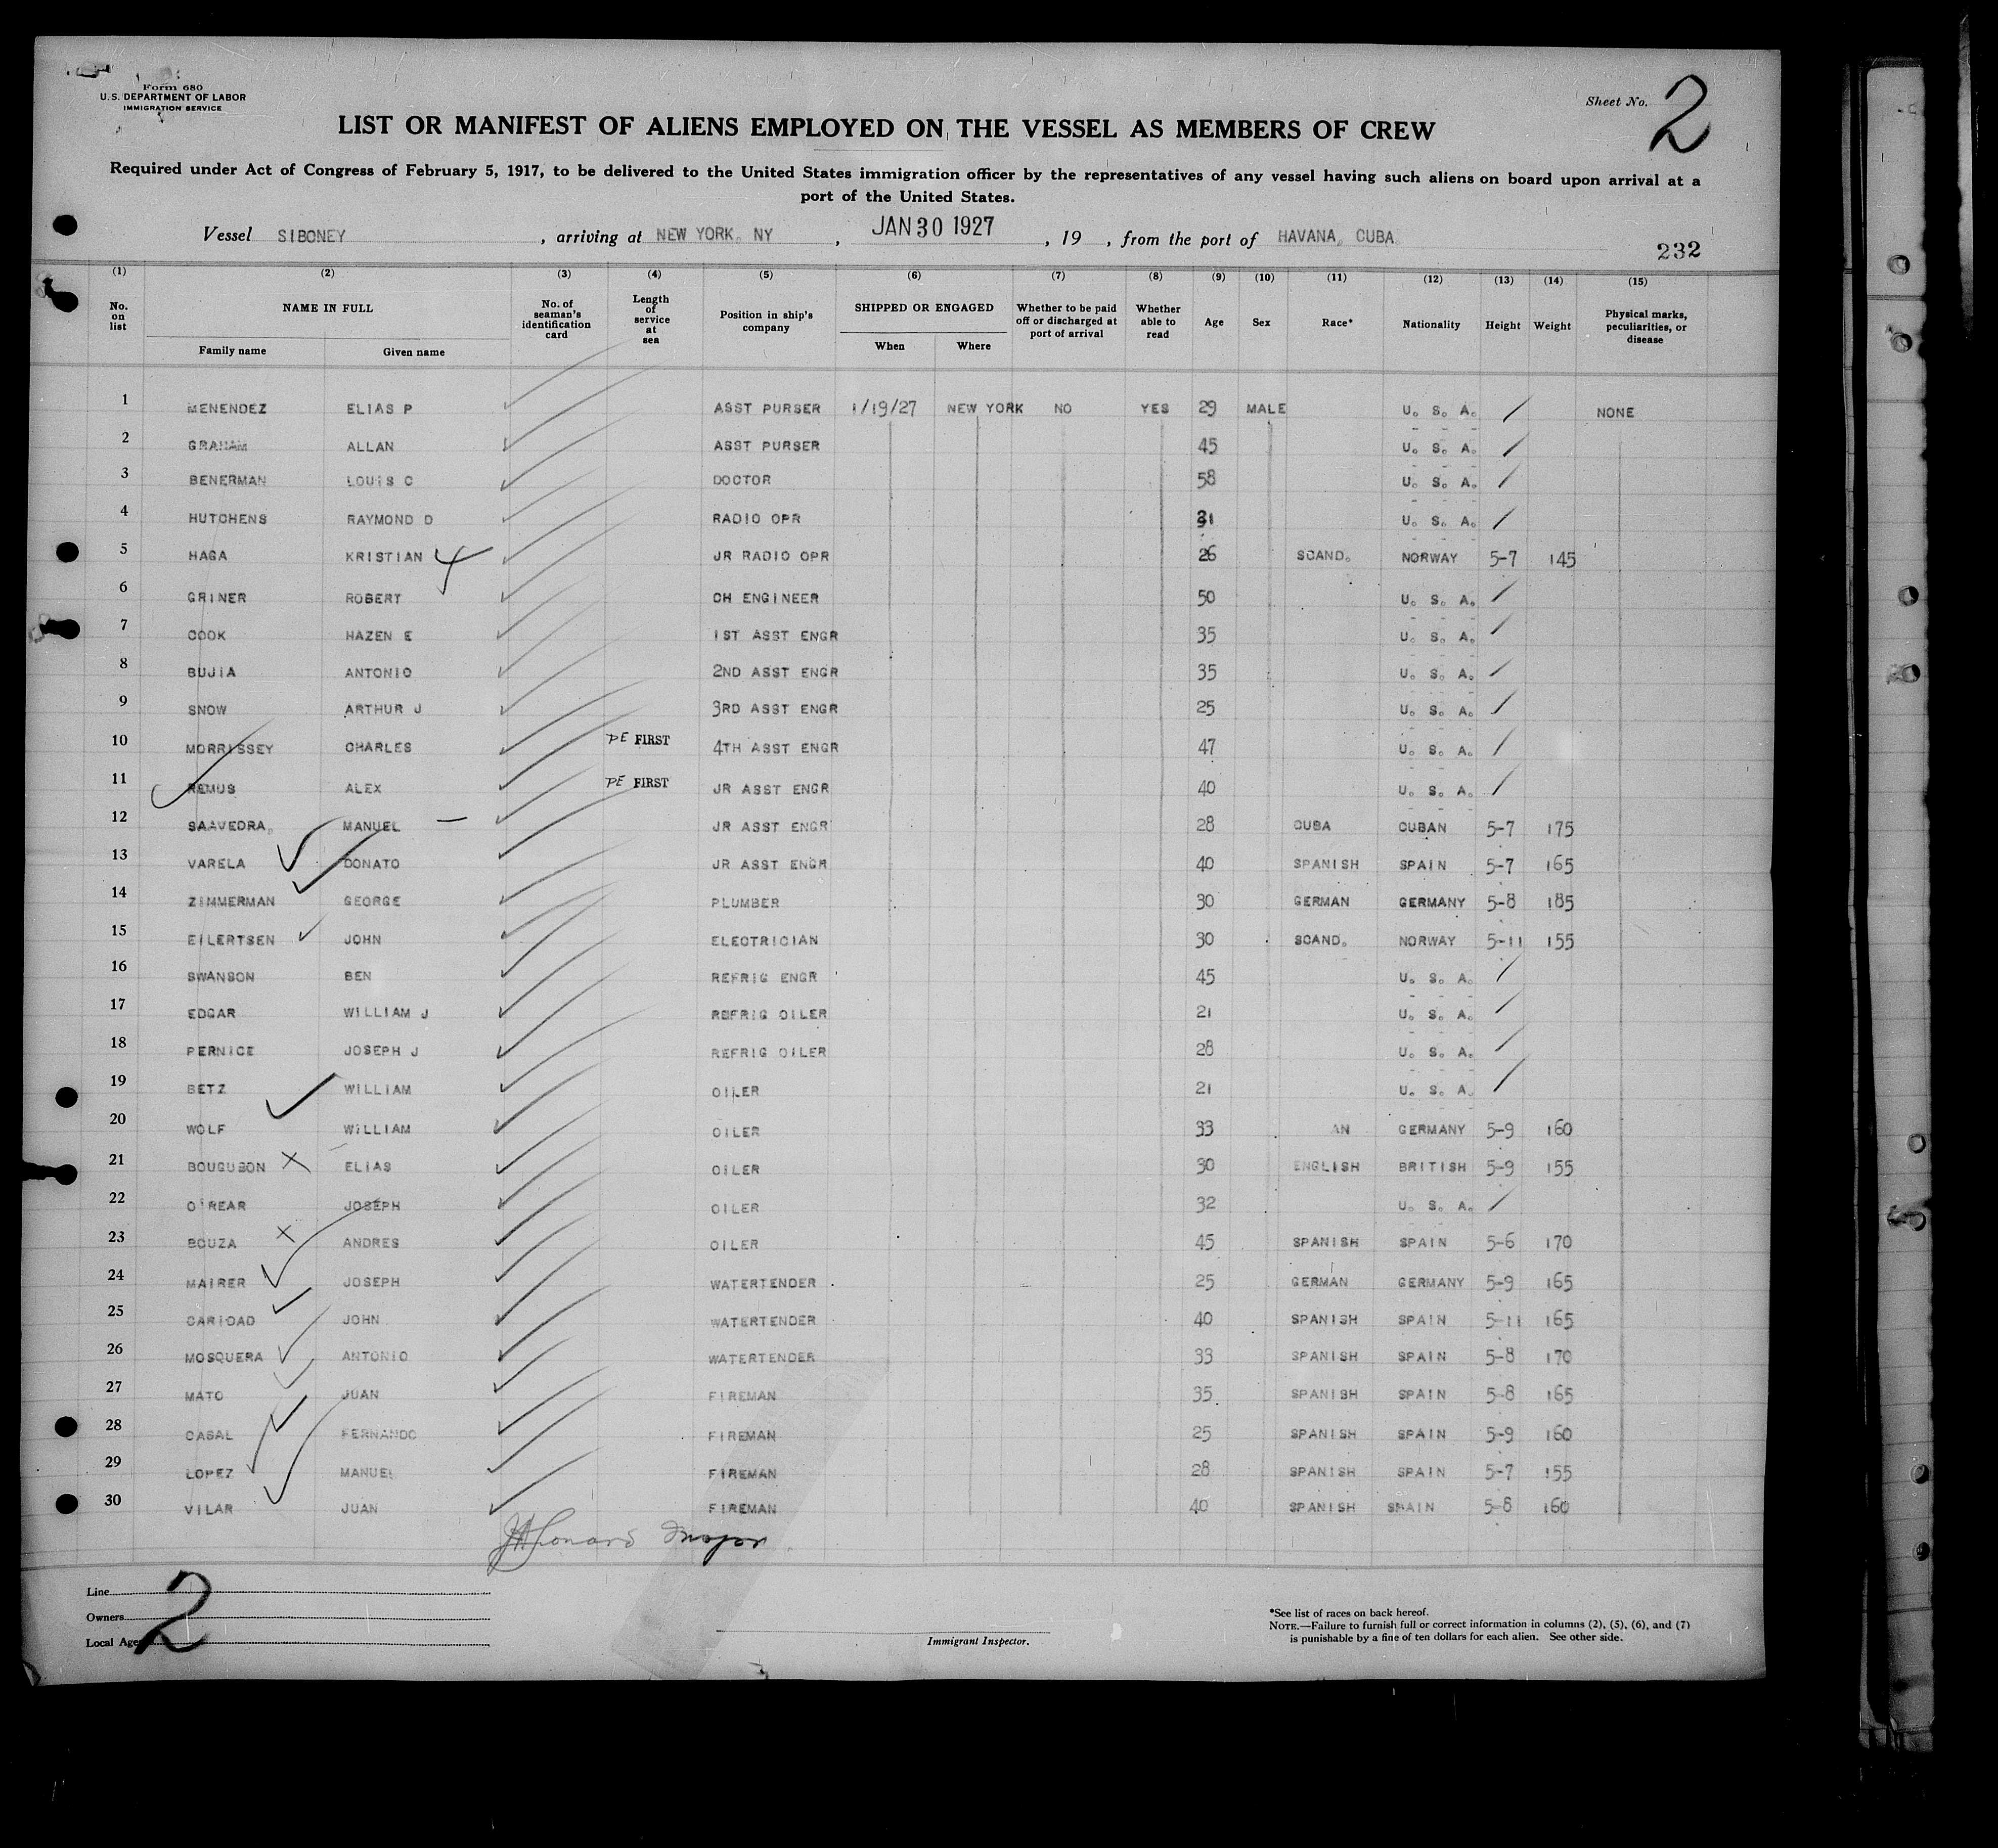 Form 680
U.S. DEPARTMENT OF LABOR
IMMIGRATION SERVICE
Sheet No. 2
LIST OR MANIFEST OF ALIENS EMPLOYED ON THE VESSEL AS MEMBERS OF CREW
Required under Act of Congress of February 5, 1917, to be delivered to the United States immigration officer by the representatives of any vessel having such aliens on board upon arrival at a
port of the United States.
Vessel SIBONEY , arriving at NEW YORK, NY , JAN 30 1927 , 19 , from the port of HAVANA, CUBA
232
(1) (2) (3) (4) (5) (6) (7) (8) (9) (10) (11) (12) (13) (14) (15)
No. on list NAME IN FULL Family name Given name No. of seaman's identification card Length of service at sea Position in ship's company SHIPPED OR ENGAGED When Where Whether to be paid off or discharged at port of arrival Whether able to read Age Sex Race* Nationality Height Weight Physical marks, peculiarities, or disease
1 MENENDEZ ELIAS P ASST PURSER 1/19/27 NEW YORK NO YES 29 MALE U. S. A. NONE
2 GRAHAM ALLAN ASST PURSER 45 U. S. A.
3 BENERMAN LOUIS C DOCTOR 58 U. S. A.
4 HUTCHENS RAYMOND D RADIO OPR 31 U. S. A.
5 HAGA KRISTIAN JR RADIO OPR 26 SCAND. NORWAY 5-7 145
6 GRINER ROBERT CH ENGINEER 50 U. S. A.
7 COOK HAZEN E 1ST ASST ENGR 35 U. S. A.
8 BUJIA ANTONIO 2ND ASST ENGR 35 U. S. A.
9 SNOW ARTHUR J 3RD ASST ENGR 25 U. S. A.
10 MORRISSEY CHARLES PE FIRST 4TH ASST ENGR 47 U. S. A.
11 REMUS ALEX PE FIRST JR ASST ENGR 40 U. S. A.
12 SAAVEDRA, MANUEL JR ASST ENGR 28 CUBA CUBAN 5-7 175
13 VARELA DONATO JR ASST ENGR 40 SPANISH SPAIN 5-7 165
14 ZIMMERMAN GEORGE PLUMBER 30 GERMAN GERMANY 5-8 185
15 EILERTSEN JOHN ELECTRICIAN 30 SCAND. NORWAY 5-11 155
16 SWANSON BEN REFRIG ENGR 45 U. S. A.
17 EDGAR WILLIAM J REFRIG OILER 21 U. S. A.
18 PERNICE JOSEPH J REFRIG OILER 28 U. S. A.
19 BETZ WILLIAM OILER 21 U. S. A.
20 WOLF WILLIAM OILER 33 AN GERMANY 5-9 160
21 BOUGUSON ELIAS OILER 30 ENGLISH BRITISH 5-9 155
22 O'REAR JOSEPH OILER 32 U. S. A.
23 BOUZA ANDRES OILER 45 SPANISH SPAIN 5-6 170
24 MAIRER JOSEPH WATERTENDER 25 GERMAN GERMANY 5-9 165
25 CARIDAD JOHN WATERTENDER 40 SPANISH SPAIN 5-11 165
26 MOSQUERA ANTONIO WATERTENDER 33 SPANISH SPAIN 5-8 170
27 MATO JUAN FIREMAN 35 SPANISH SPAIN 5-8 165
28 CASAL FERNANDO FIREMAN 25 SPANISH SPAIN 5-9 160
29 LOPEZ MANUEL FIREMAN 28 SPANISH SPAIN 5-7 155
30 VILAR JUAN FIREMAN 40 SPANISH SPAIN 5-8 160
Line
Owners
Local Age
2
Immigrant Inspector.
*See list of races on back hereof.
NOTE.—Failure to furnish full or correct information in columns (2), (5), (6), and (7)
is punishable by a fine of ten dollars for each alien. See other side.